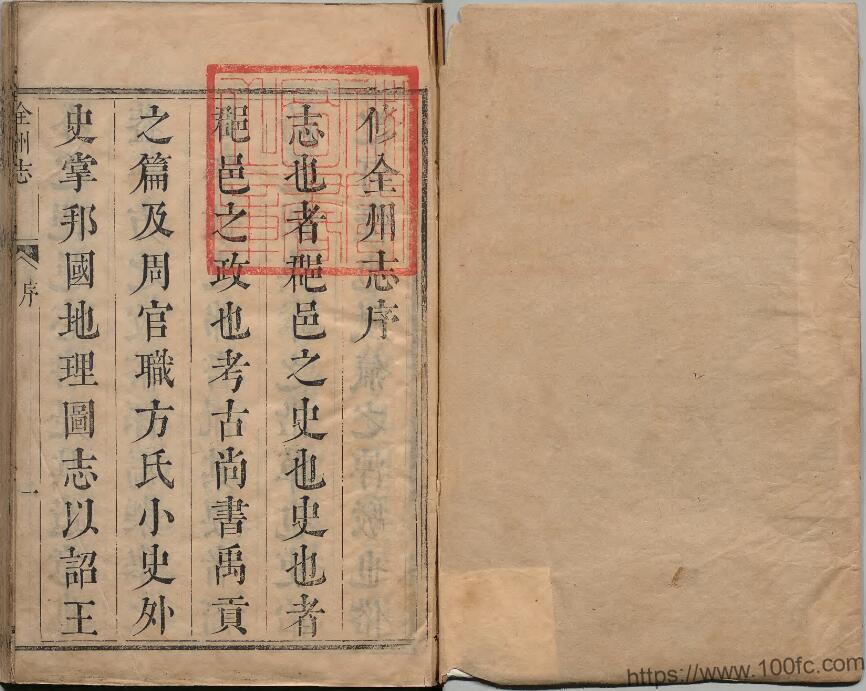 修全州志序
志也者郡邑之史也史也者
郡邑之政也考古尚書禹貢
之篇及周官職方氏小史外
史掌邦國地理圖志以詔王
全州志
序
一
https://www.100fc.com